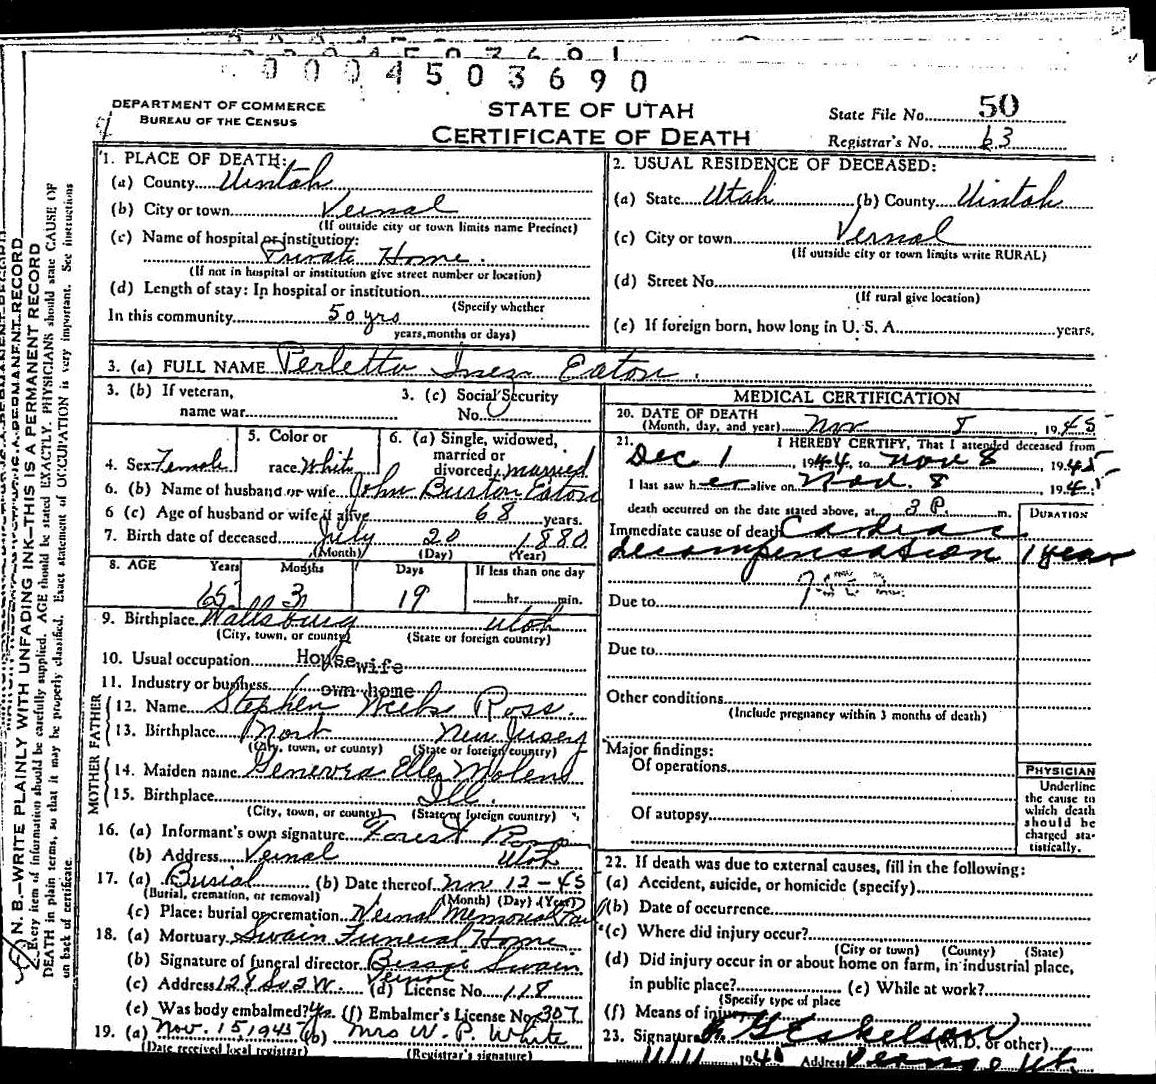 0004503690
DEPARTMENT OF COMMERCE
BUREAU OF THE CENSUS
STATE OF UTAH
CERTIFICATE OF DEATH
State File No. 50
Registrar's No. 63
N. B.—WRITE PLAINLY WITH UNFADING INK—THIS IS A PERMANENT RECORD
Every item of information should be carefully supplied. AGE should be stated EXACTLY. PHYSICIANS should state CAUSE OF
DEATH in plain terms, so that it may be properly classified. Exact statement of OCCUPATION is very important. See instructions
on back of certificate.
1. PLACE OF DEATH:
(a) County Uintah
(b) City or town Vernal
(If outside city or town limits name Precinct)
(c) Name of hospital or institution:
Private Home.
(If not in hospital or institution give street number or location)
(d) Length of stay: In hospital or institution
(Specify whether
In this community 50 yrs
years, months or days)
2. USUAL RESIDENCE OF DECEASED:
(a) State Utah (b) County Uintah
(c) City or town Vernal
(If outside city or town limits write RURAL)
(d) Street No.
(If rural give location)
(e) If foreign born, how long in U. S. A. years.
3. (a) FULL NAME Perletta Inez Eaton.
3. (b) If veteran, name war
3. (c) Social Security No.
4. Sex Female
5. Color or race White
6. (a) Single, widowed, married or divorced married
6. (b) Name of husband or wife John Burton Eaton
6 (c) Age of husband or wife if alive 68 years.
7. Birth date of deceased July 20 1880
(Month) (Day) (Year)
8. AGE Years Months Days If less than one day
65 3 19 hr. min.
9. Birthplace Wallsburg Utah
(City, town, or county) (State or foreign country)
10. Usual occupation Housewife
11. Industry or business own home
FATHER
12. Name Stephen Weibe Ross.
13. Birthplace New Jersey
(City, town, or county) (State or foreign country)
MOTHER
14. Maiden name Genevra Ellen
15. Birthplace Ill.
(City, town, or county) (State or foreign country)
16. (a) Informant's own signature Forest Ross
(b) Address Vernal Utah
17. (a) Burial (b) Date thereof Nov 12-45
(Burial, cremation, or removal) (Month) (Day) (Year)
(c) Place: burial or cremation Vernal Memorial Park
18. (a) Mortuary Swain Funeral Home
(b) Signature of funeral director Bessie Swain
(c) Address 128 So 2 W. Vernal (d) License No. 118
(e) Was body embalmed? Yes. (f) Embalmer's License No. 307
19. (a) Nov. 15, 1945 (b) Mrs W. P. White
(Date received local registrar) (Registrar's signature)
MEDICAL CERTIFICATION
20. DATE OF DEATH
(Month, day, and year) Nov 8 1945
21. I HEREBY CERTIFY, That I attended deceased from
Dec 1 1944 to Nov 8, 1945
I last saw her alive on Nov. 8, 1945
death occurred on the date stated above, at 3 P. m.
DURATION
Immediate cause of death Cardiac
decompensation 1 year
Due to
Due to
Other conditions
(Include pregnancy within 3 months of death)
Major findings:
Of operations
Of autopsy
PHYSICIAN
Underline
the cause to
which death
should be
charged sta-
tistically.
22. If death was due to external causes, fill in the following:
(a) Accident, suicide, or homicide (specify)
(b) Date of occurrence
(c) Where did injury occur?
(City or town) (County) (State)
(d) Did injury occur in or about home on farm, in industrial place,
in public place? (e) While at work?
(Specify type of place
(f) Means of injury
23. Signature G Eskelson (M.D. or other)
11/11 1945 Address Vernal Ut.